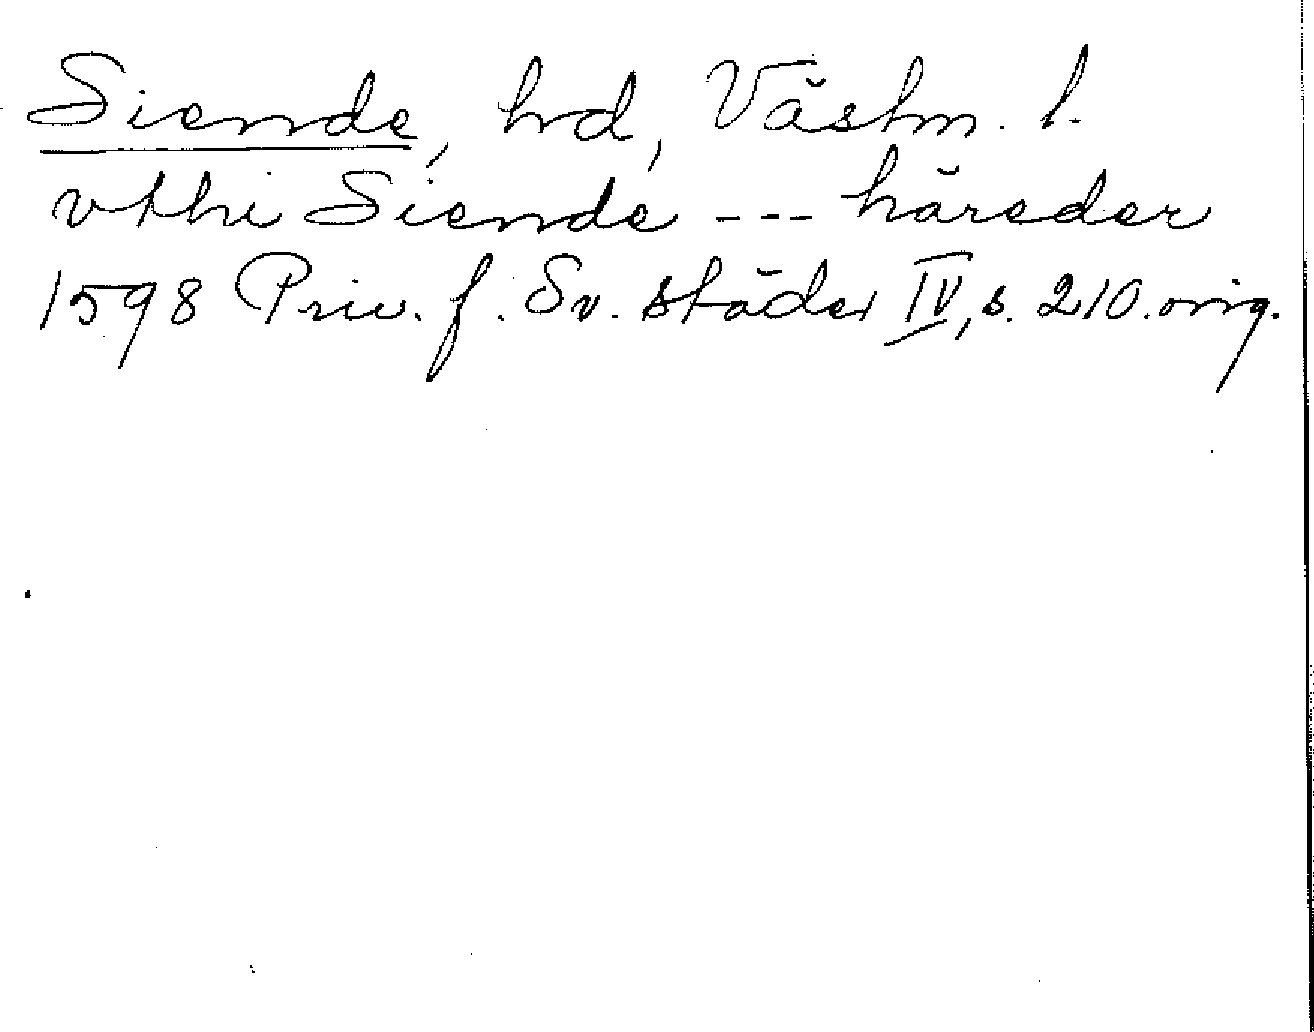 Siende, hd, Västm. l.
vthi Siende --- häreder
1598 Priv. f. Sv. städer IV, s. 210. orig.